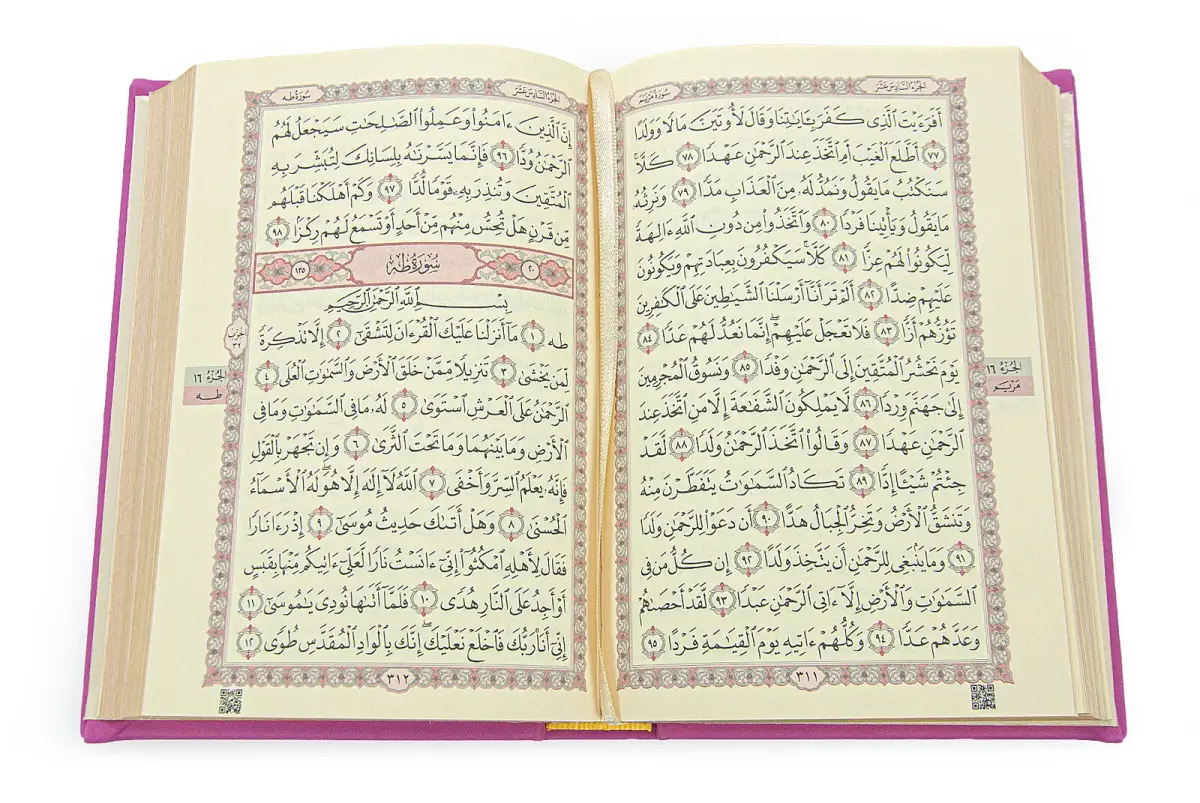 سُورَةُ مَرْيَم
الجُزْءُ السَّادِسَ عَشَرَ
أَفَرَءَيْتَ ٱلَّذِى كَفَرَ بِـَٔايَٰتِنَا وَقَالَ لَأُوتَيَنَّ مَالًا وَوَلَدًا
٧٧ أَطَّلَعَ ٱلْغَيْبَ أَمِ ٱتَّخَذَ عِندَ ٱلرَّحْمَٰنِ عَهْدًا ٧٨ كَلَّا
سَنَكْتُبُ مَا يَقُولُ وَنَمُدُّ لَهُۥ مِنَ ٱلْعَذَابِ مَدًّا ٧٩ وَنَرِثُهُۥ
مَا يَقُولُ وَيَأْتِينَا فَرْدًا ٨٠ وَٱتَّخَذُوا۟ مِن دُونِ ٱللَّهِ ءَالِهَةً
لِّيَكُونُوا۟ لَهُمْ عِزًّا ٨١ كَلَّا سَيَكْفُرُونَ بِعِبَادَتِهِمْ وَيَكُونُونَ
عَلَيْهِمْ ضِدًّا ٨٢ أَلَمْ تَرَ أَنَّآ أَرْسَلْنَا ٱلشَّيَٰطِينَ عَلَى ٱلْكَٰفِرِينَ
تَؤُزُّهُمْ أَزًّا ٨٣ فَلَا تَعْجَلْ عَلَيْهِمْ ۖ إِنَّمَا نَعُدُّ لَهُمْ عَدًّا ٨٤
يَوْمَ نَحْشُرُ ٱلْمُتَّقِينَ إِلَى ٱلرَّحْمَٰنِ وَفْدًا ٨٥ وَنَسُوقُ ٱلْمُجْرِمِينَ
إِلَىٰ جَهَنَّمَ وِرْدًا ٨٦ لَّا يَمْلِكُونَ ٱلشَّفَٰعَةَ إِلَّا مَنِ ٱتَّخَذَ عِندَ
ٱلرَّحْمَٰنِ عَهْدًا ٨٧ وَقَالُوا۟ ٱتَّخَذَ ٱلرَّحْمَٰنُ وَلَدًا ٨٨ لَّقَدْ
جِئْتُمْ شَيْـًٔا إِدًّا ٨٩ تَكَادُ ٱلسَّمَٰوَٰتُ يَتَفَطَّرْنَ مِنْهُ
وَتَنشَقُّ ٱلْأَرْضُ وَتَخِرُّ ٱلْجِبَالُ هَدًّا ٩٠ أَن دَعَوْا۟ لِلرَّحْمَٰنِ وَلَدًا
٩١ وَمَا يَنۢبَغِى لِلرَّحْمَٰنِ أَن يَتَّخِذَ وَلَدًا ٩٢ إِن كُلُّ مَن فِى
ٱلسَّمَٰوَٰتِ وَٱلْأَرْضِ إِلَّآ ءَاتِى ٱلرَّحْمَٰنِ عَبْدًا ٩٣ لَّقَدْ أَحْصَىٰهُمْ
وَعَدَّهُمْ عَدًّا ٩٤ وَكُلُّهُمْ ءَاتِيهِ يَوْمَ ٱلْقِيَٰمَةِ فَرْدًا ٩٥
الجُزْءُ ١٦
مَرْيَم
٣١١
الجُزْءُ السَّادِسَ عَشَرَ
سُورَةُ طه
إِنَّ ٱلَّذِينَ ءَامَنُوا۟ وَعَمِلُوا۟ ٱلصَّٰلِحَٰتِ سَيَجْعَلُ لَهُمُ
ٱلرَّحْمَٰنُ وُدًّا ٩٦ فَإِنَّمَا يَسَّرْنَٰهُ بِلِسَانِكَ لِتُبَشِّرَ بِهِ
ٱلْمُتَّقِينَ وَتُنذِرَ بِهِۦ قَوْمًا لُّدًّا ٩٧ وَكَمْ أَهْلَكْنَا قَبْلَهُم
مِّن قَرْنٍ هَلْ تُحِسُّ مِنْهُم مِّنْ أَحَدٍ أَوْ تَسْمَعُ لَهُمْ رِكْزًۢا ٩٨
٢٠ سُورَةُ طه ١٣٥
بِسْمِ ٱللَّهِ ٱلرَّحْمَٰنِ ٱلرَّحِيمِ
طه ١ مَآ أَنزَلْنَا عَلَيْكَ ٱلْقُرْءَانَ لِتَشْقَىٰٓ ٢ إِلَّا تَذْكِرَةً
لِّمَن يَخْشَىٰ ٣ تَنزِيلًا مِّمَّنْ خَلَقَ ٱلْأَرْضَ وَٱلسَّمَٰوَٰتِ ٱلْعُلَى ٤
ٱلرَّحْمَٰنُ عَلَى ٱلْعَرْشِ ٱسْتَوَىٰ ٥ لَهُۥ مَا فِى ٱلسَّمَٰوَٰتِ وَمَا فِى
ٱلْأَرْضِ وَمَا بَيْنَهُمَا وَمَا تَحْتَ ٱلثَّرَىٰ ٦ وَإِن تَجْهَرْ بِٱلْقَوْلِ
فَإِنَّهُۥ يَعْلَمُ ٱلسِّرَّ وَأَخْفَى ٧ ٱللَّهُ لَآ إِلَٰهَ إِلَّا هُوَ ۖ لَهُ ٱلْأَسْمَآءُ
ٱلْحُسْنَىٰ ٨ وَهَلْ أَتَىٰكَ حَدِيثُ مُوسَىٰٓ ٩ إِذْ رَءَا نَارًا
فَقَالَ لِأَهْلِهِ ٱمْكُثُوٓا۟ إِنِّىٓ ءَانَسْتُ نَارًا لَّعَلِّىٓ ءَاتِيكُم مِّنْهَا بِقَبَسٍ
أَوْ أَجِدُ عَلَى ٱلنَّارِ هُدًى ١٠ فَلَمَّآ أَتَىٰهَا نُودِىَ يَٰمُوسَىٰٓ ١١
إِنِّىٓ أَنَا۠ رَبُّكَ فَٱخْلَعْ نَعْلَيْكَ ۖ إِنَّكَ بِٱلْوَادِ ٱلْمُقَدَّسِ طُوًى ١٢
حِزْب
٣٢
الجُزْءُ ١٦
طه
٣١٢